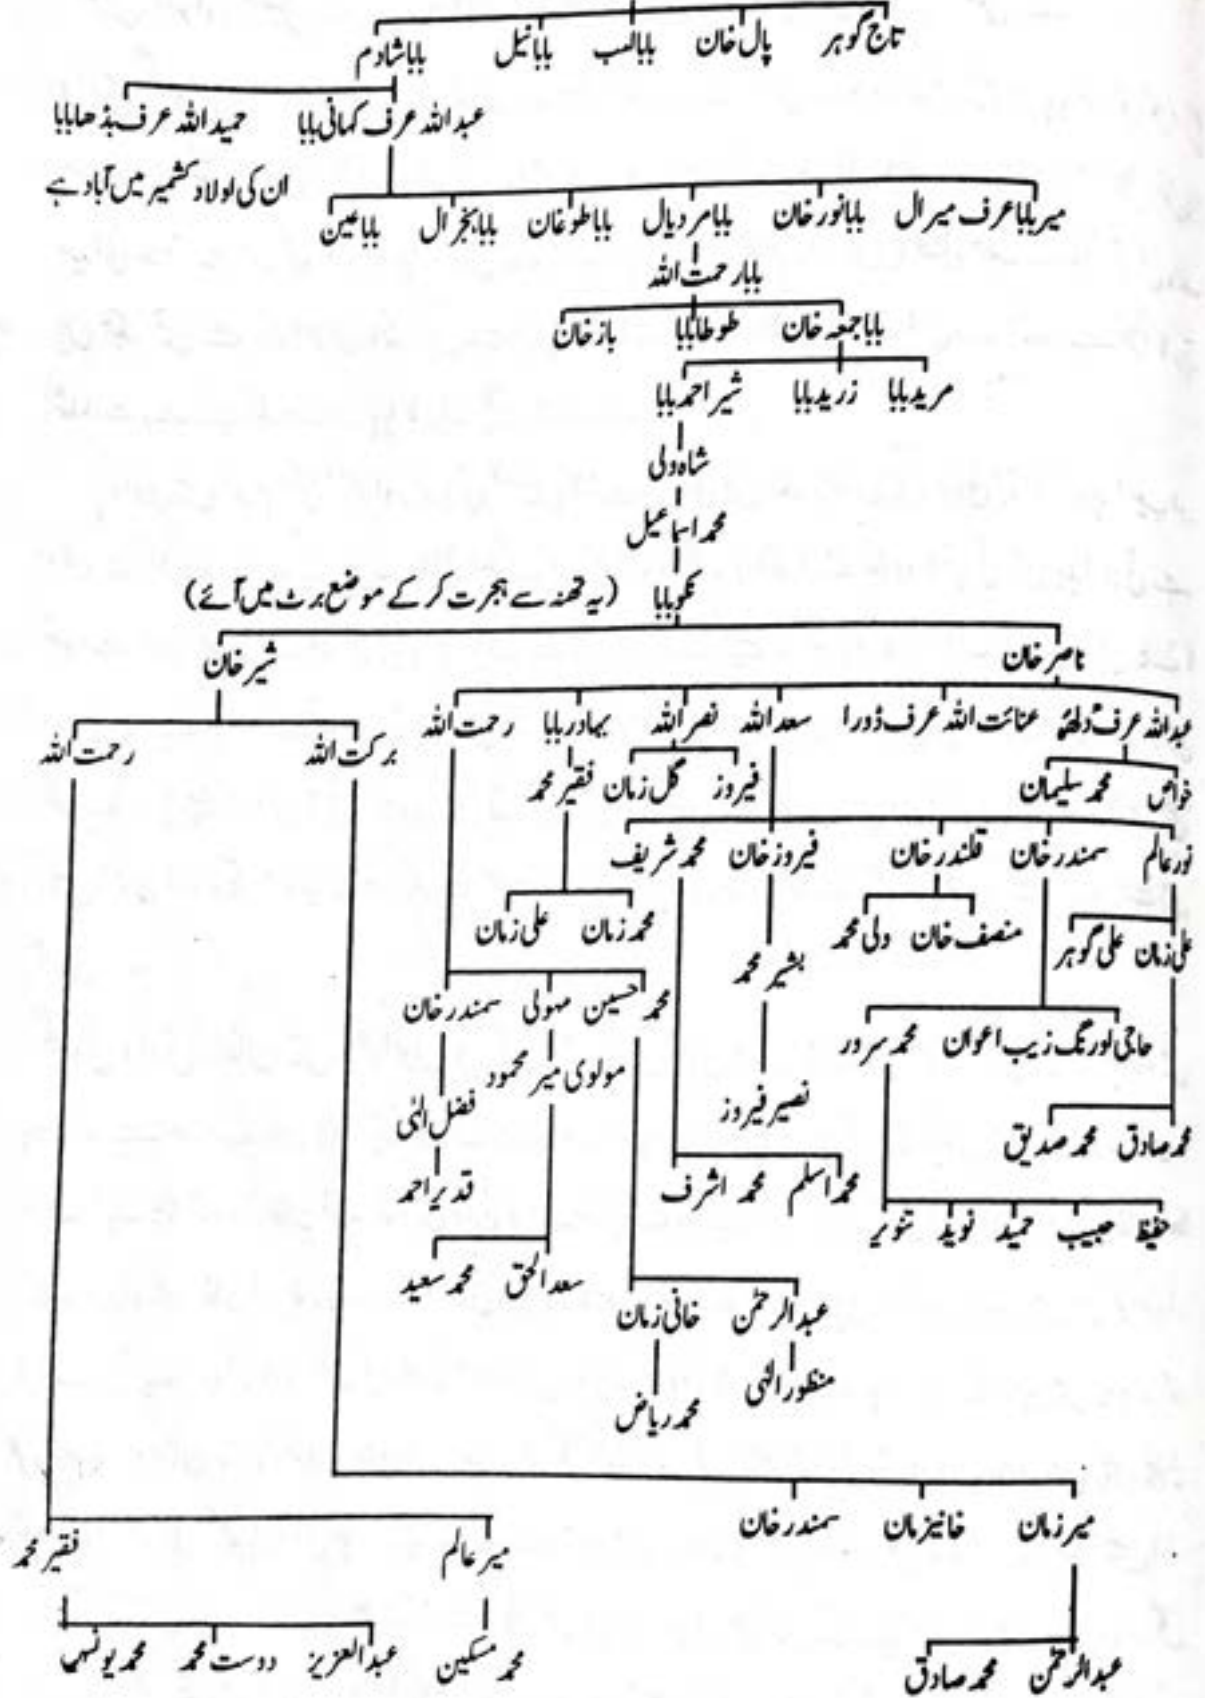 تاج گوہر پال خان بابا لب بابا نیل بابا شادم
عبداللہ عرف کہانی بابا حمید اللہ عرف بڈھا بابا
ان کی اولاد کشمیر میں آباد ہے
میر بابا عرف میرال بابا نور خان بابا مردیال بابا طوغان بابا بخرال بابا عین
بابا رحمت اللہ
بابا جمعہ خان طوطا بابا باز خان
مرید بابا زرید بابا شیر احمد بابا
شاہ ولی
محمد اسماعیل
بابا (یہ تھنہ سے ہجرت کر کے موضع برٹ میں آئے)
ناصر خان شیر خان
عبداللہ عرف عنائت اللہ عرف ڈورا سعد اللہ نصر اللہ بہادر بابا رحمت اللہ برکت اللہ رحمت اللہ
خواص محمد سلیمان فیروز گل زمان فقیر محمد
نور عالم سمندر خان قلندر خان فیروز خان محمد شریف
علی زمان علی گوہر منصف خان ولی محمد بشیر محمد محمد زمان علی زمان
حاجی اورنگ زیب اعوان محمد سرور محمد حسین مہولی سمندر خان
محمد صادق محمد صدیق نصیر فیروز مولوی میر محمود فضل الٰہی
محمد اسلم محمد اشرف قدیر احمد
حفیظ حبیب حمید نوید تنویر
سعد الحق محمد سعید
عبدالرحمٰن خانی زمان
منظور الٰہی محمد ریاض
میر زمان خانیزمان سمندر خان میر عالم فقیر محمد
عبدالرحمٰن محمد صادق محمد مسکین عبدالعزیز دوست محمد محمد یونس